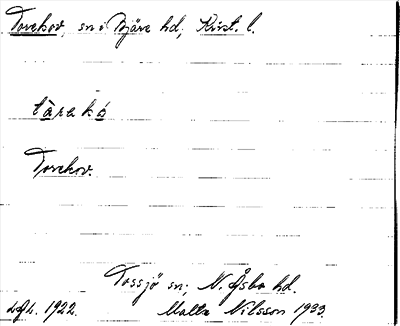 Torekov, sn i Bjäre hd, Krist. l.
tàrekó
Torekov.
Tossjö sn; N. Åsbo hd.
1922. Malte Nilsson 1933.